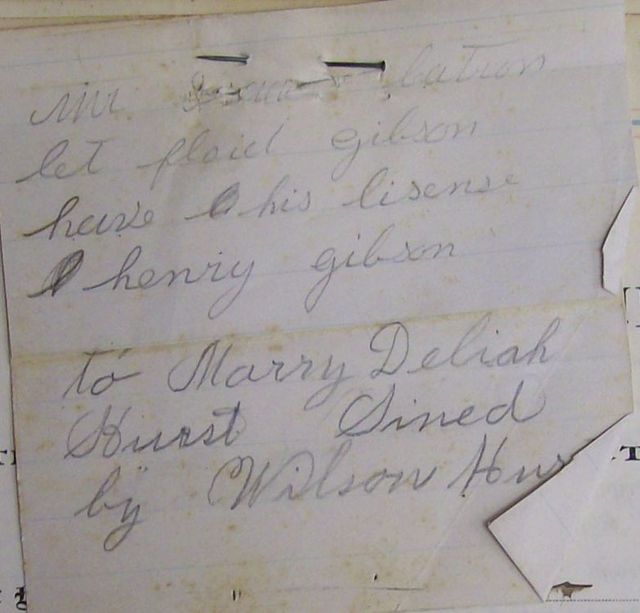 Mr
let floid gibson
have his lisense
henry gibson
to Marry Deliah
Hurst Sined
by Wilson